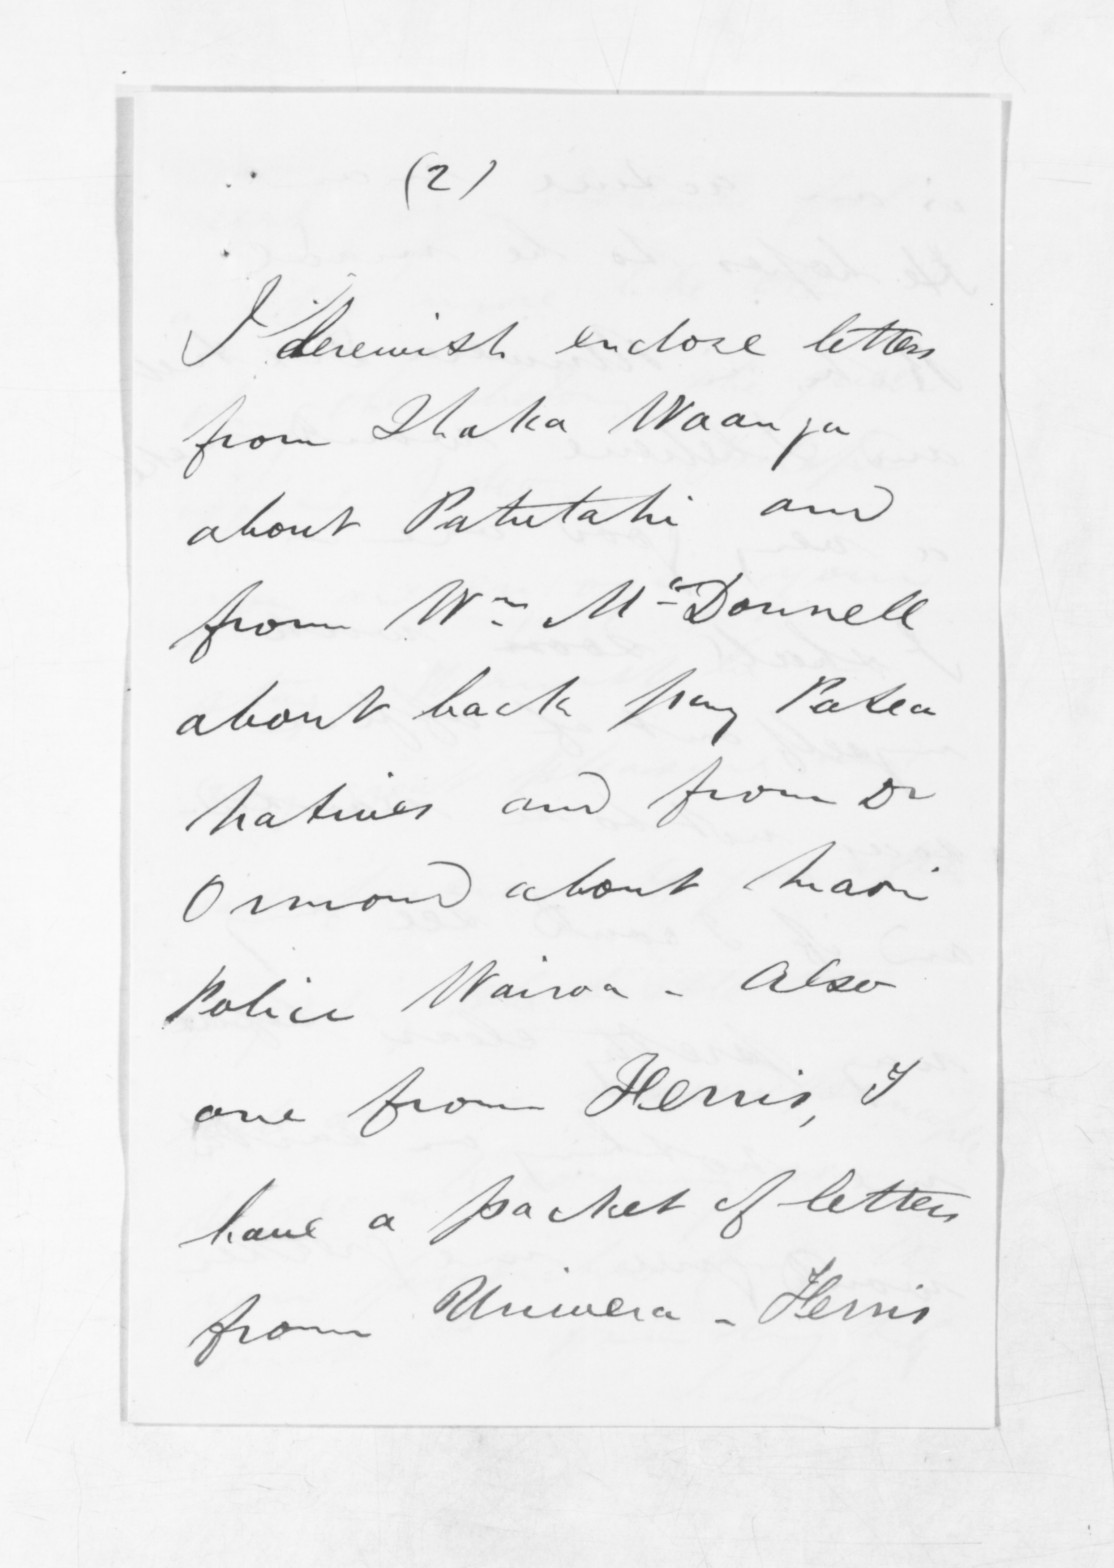 (2)
I herewith enclose letters
from Ihaka Waanga
about Patutahi and
from Wm McDonnell
about back pay Patea
natives and from Dr
Ormond about Maori
Police Wairoa - Also
one from Herris, I
have a packet of letters
from Uriwera - Herris